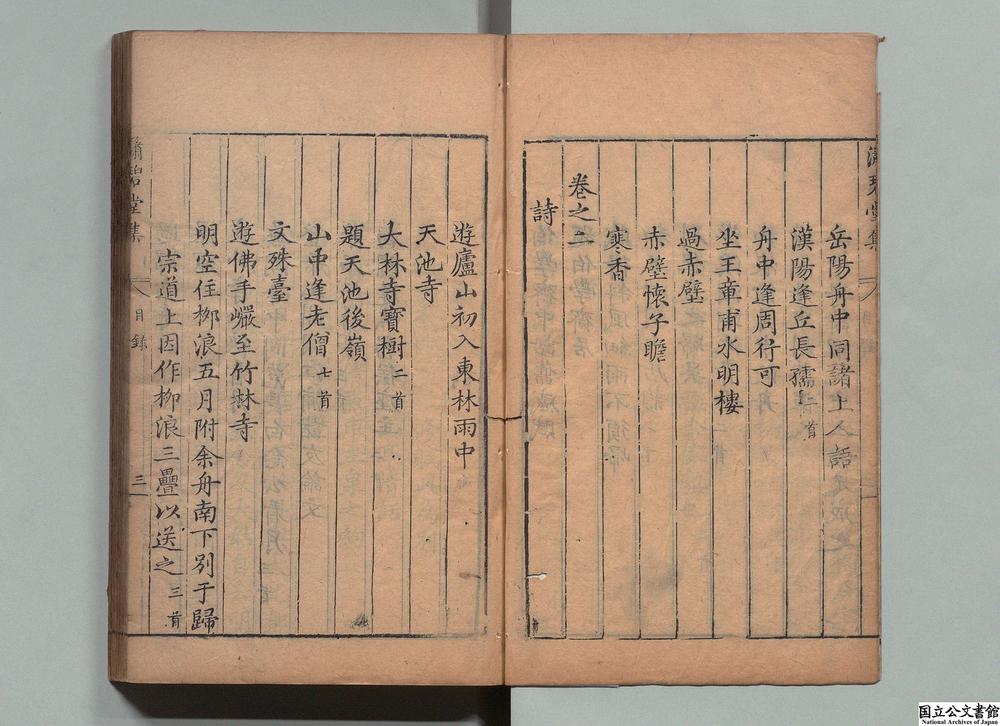 岳陽舟中同諸上人語
漢陽逢丘長孺二首
舟中逢周行可
坐王章甫水明樓
過赤壁
赤壁懷子瞻
寒香
卷之二
詩
遊廬山初入東林雨中
天池寺
大林寺寶樹二首
題天池後嶺
山中逢老僧七首
文殊臺
遊佛手巖至竹林寺
明空住柳浪五月附余舟南下别于歸
宗道上因作柳浪三疊以送之三首
瀟碧堂集
目錄
三
国立公文書館
National Archives of Japan